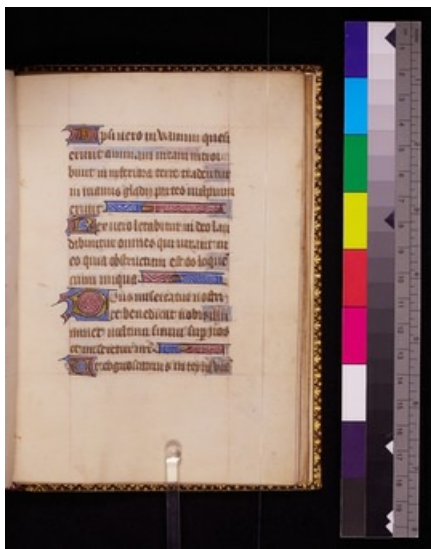 Ipsi uero in uanum quesi
erunt animam meam introi
bunt in inferiora terre tradentur
in manus gladii partes uulpium
erunt
Rex uero letabitur in deo lau
dabuntur omnes qui iurant in
eo quia obstructum est os loque
cium iniqua
Deus misereatur nostri
et benedicat nobis illu
minet uultum suum sup nos
et misereatur nri
Ut cognoscamus in terra